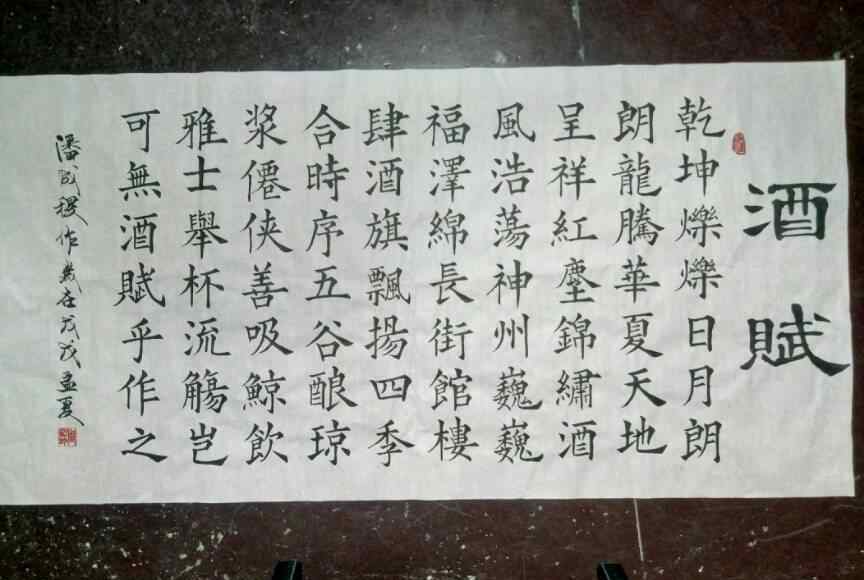 酒賦
乾坤爍爍日月朗
朗龍騰華夏天地
呈祥紅塵錦繡酒
風浩蕩神州巍巍
福澤綿長街館樓
肆酒旗飄揚四季
合時序五谷酿琼
浆僊侠善吸鯨飲
雅士舉杯流觴岂
可無酒賦乎作之
潘成稷作歲在戊戌孟夏